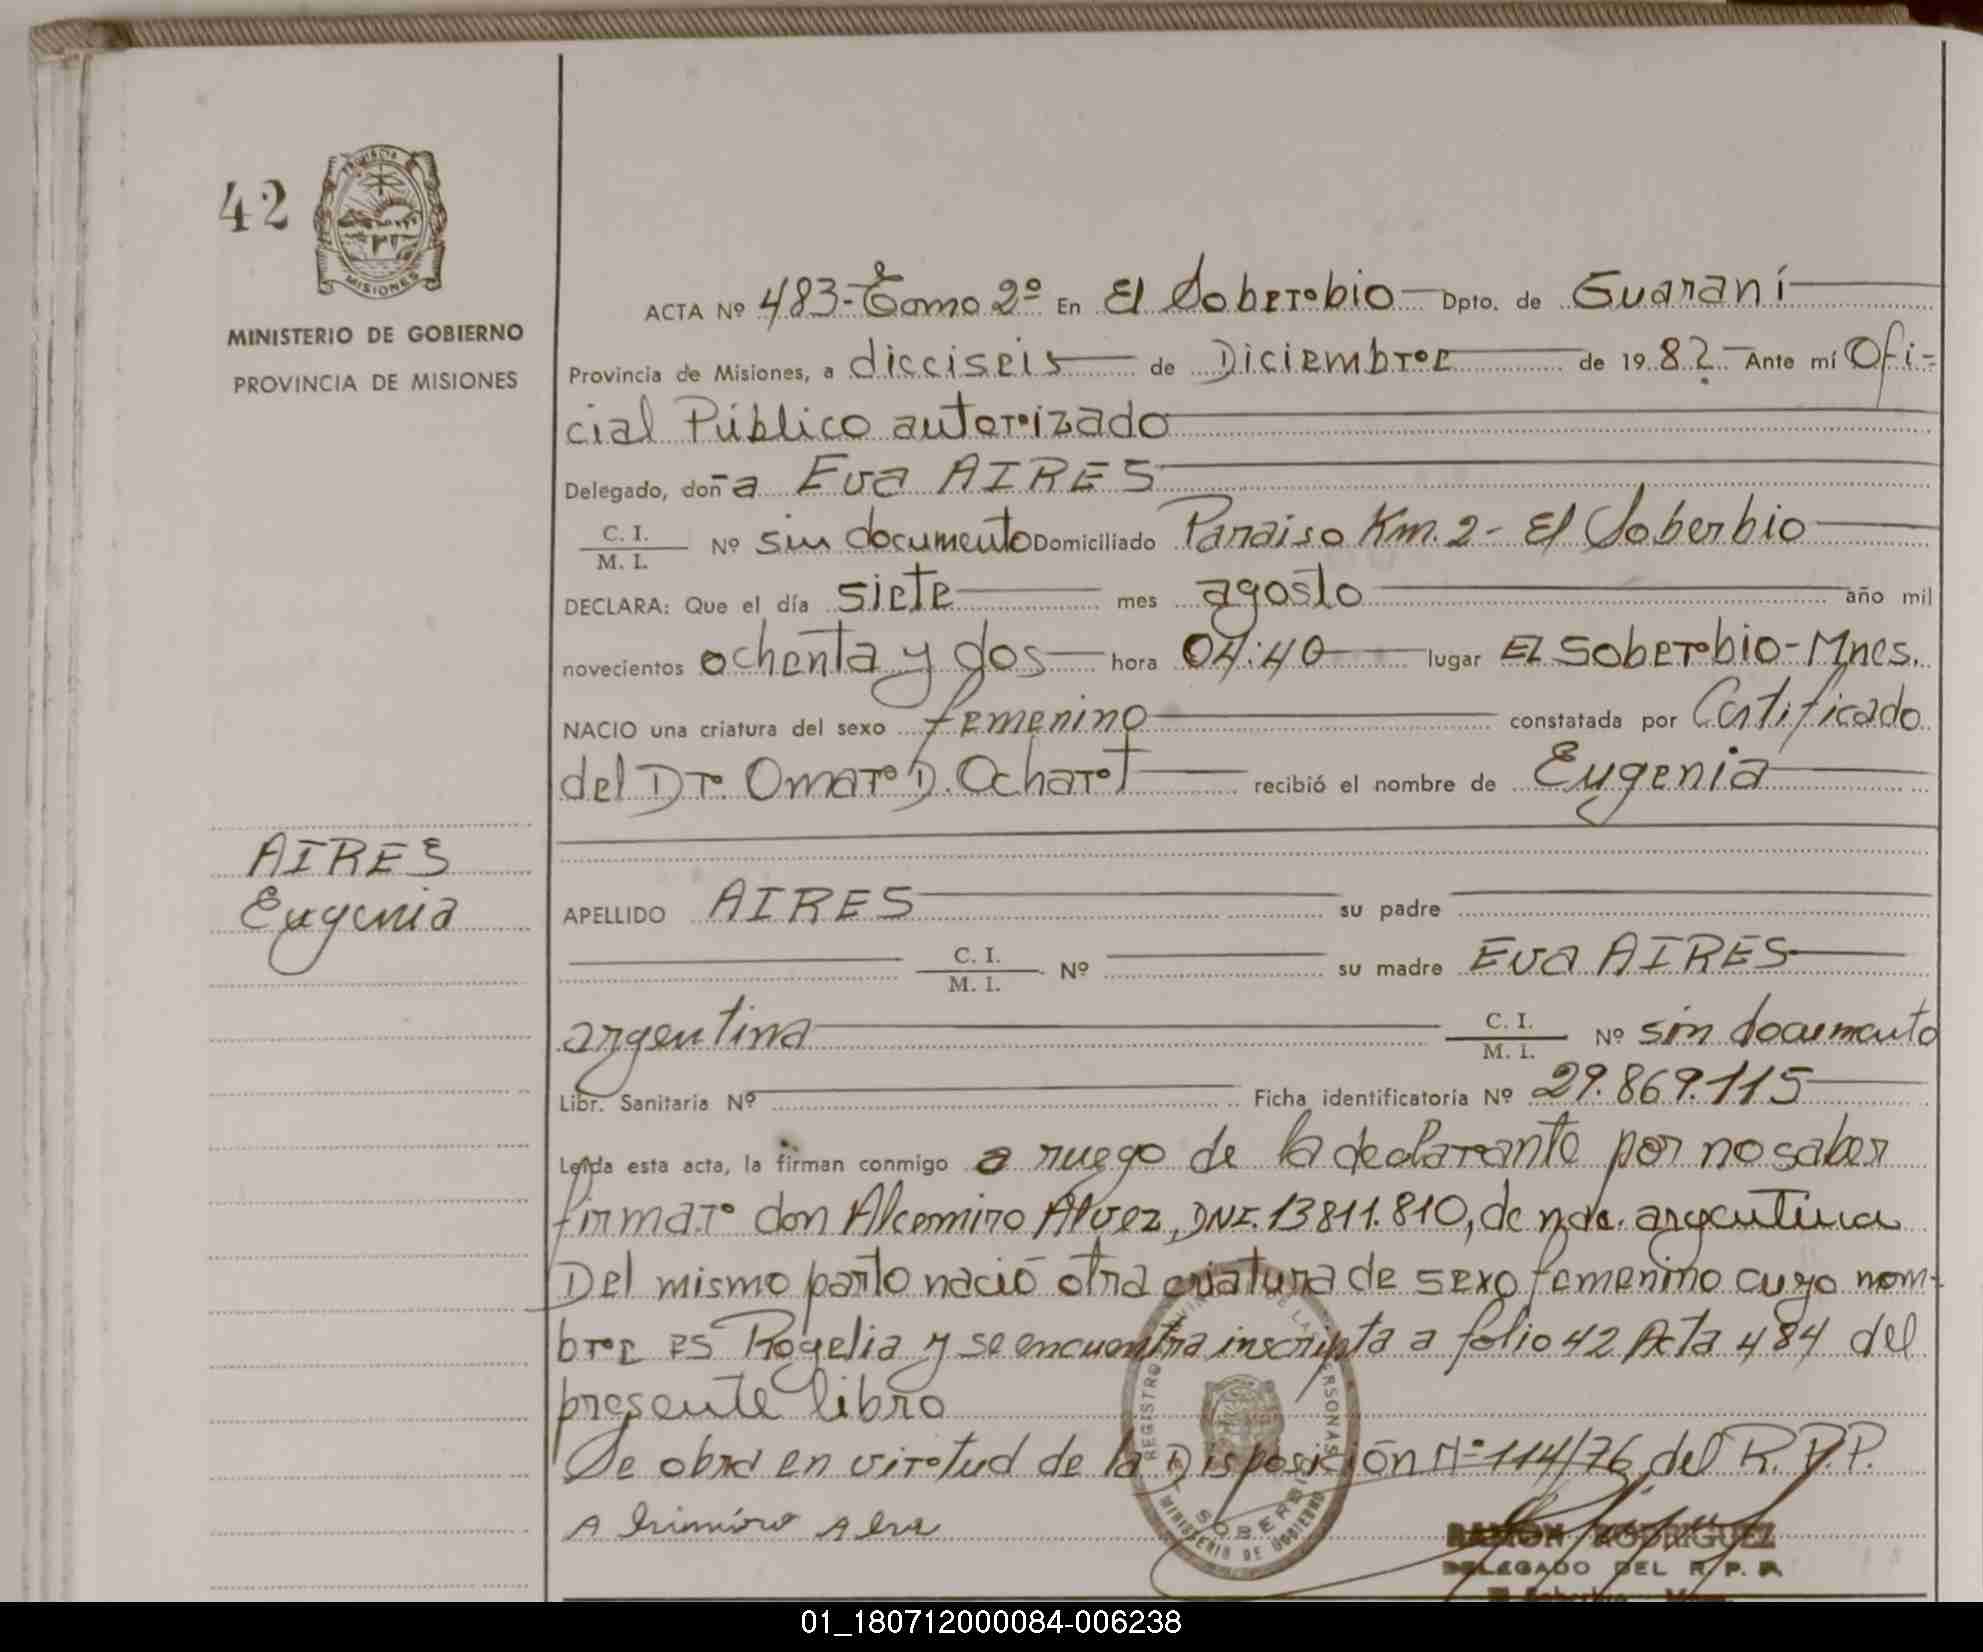 42
PROVINCIA
MISIONES
MINISTERIO DE GOBIERNO
PROVINCIA DE MISIONES
ACTA Nº 483-Tomo 2º En El Soberbio Dpto. de Guaraní
Provincia de Misiones, a dicciseis de Diciembre de 19 82 Ante mí Ofi-
cial Público autorizado
Delegado, doña Eva AIRES
C. I.
M. I. Nº sin documento Domiciliado Paraiso Km. 2 - El Soberbio
DECLARA: Que el día siete mes agosto año mil
novecientos ochenta y dos hora 04:40 lugar El Soberbio-Mnes.
NACIO una criatura del sexo femenino constatada por Certificado
del Dr. Omar D. Ochart recibió el nombre de Eugenia
AIRES
Eugenia
APELLIDO AIRES su padre
C. I.
M. I. Nº su madre Eva AIRES
argentina C. I.
M. I. Nº sin documento
Libr. Sanitaria Nº Ficha identificatoria Nº 29.869.115
Leída esta acta, la firman conmigo a ruego de la declarante por no saber
firmar don Alcemiro Alvez, DNI. 13811.810, de nac. argentina
Del mismo parto nació otra criatura de sexo femenino cuyo nom-
bre es Rogelia y se encuentra inscripta a folio 42 Acta 484 del
presente libro
Se obra en virtud de la Disposición Nº 114/76 del R.P.P.
REGISTRO PROVINCIAL DE LAS PERSONAS
SOBERBIO
MINISTERIO DE GOBIERNO
RAMON RODRIGUEZ
DELEGADO DEL R. P. P.
01_180712000084-006238